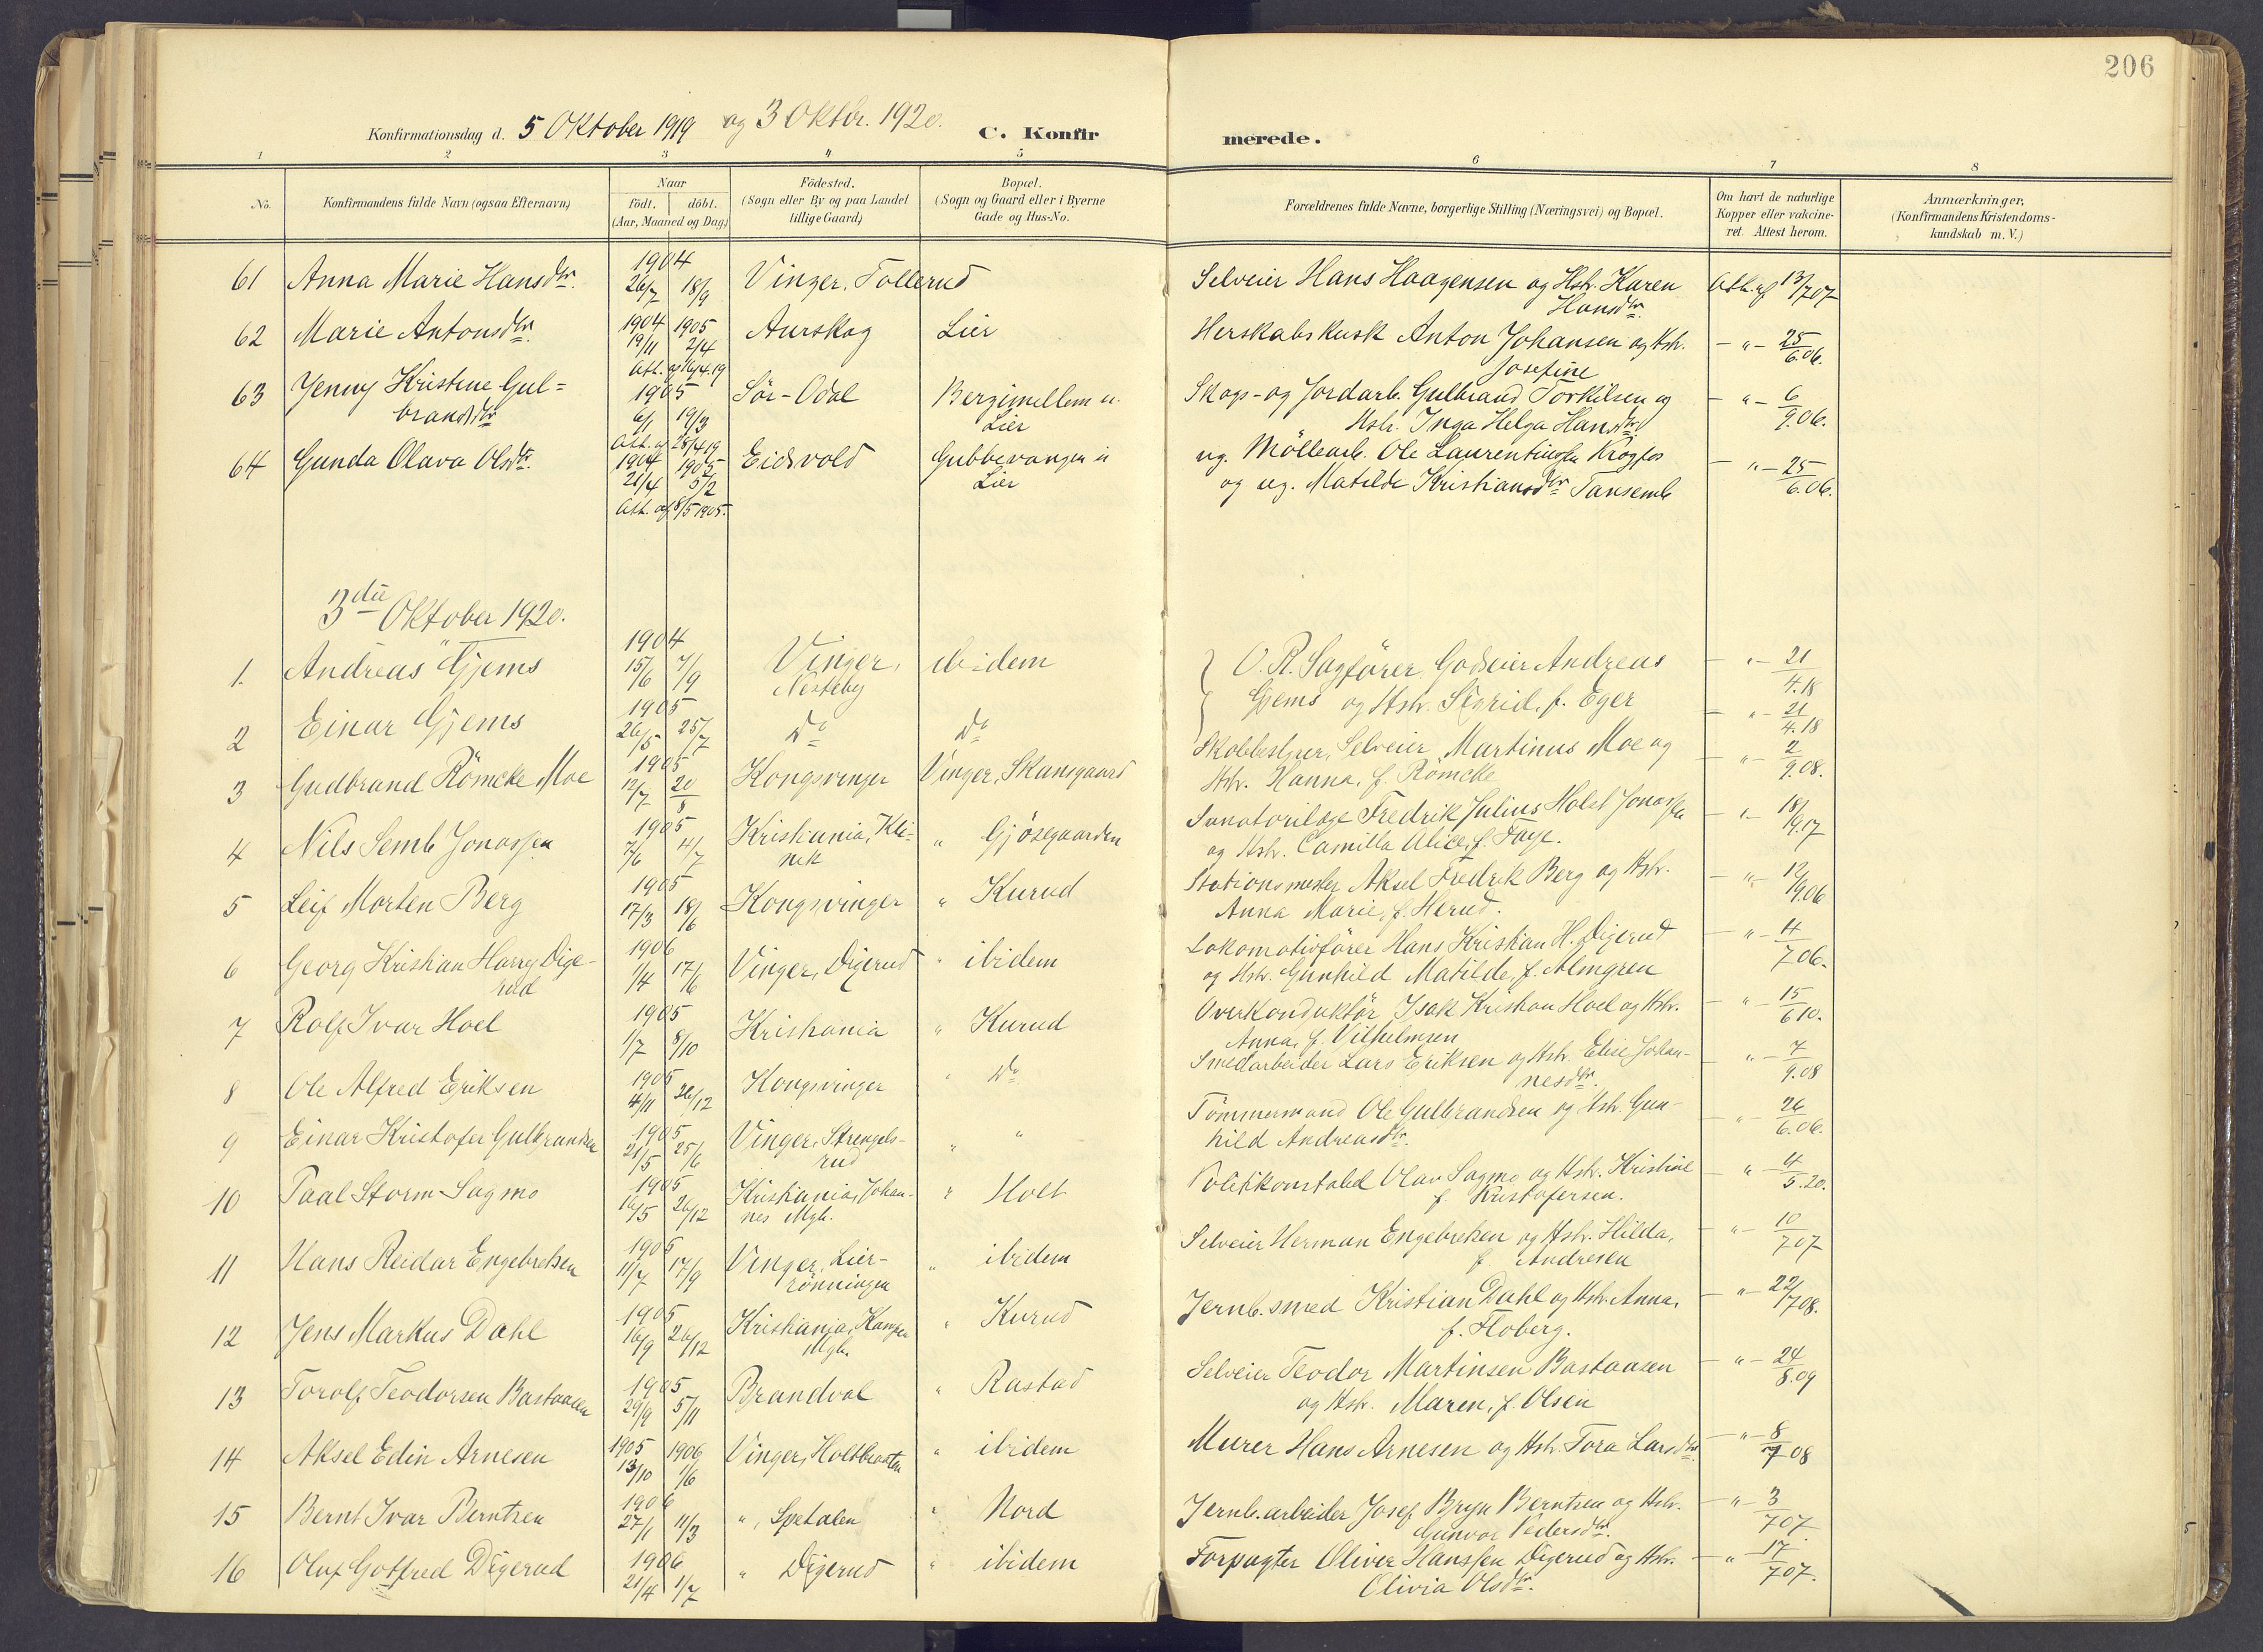 206
Konfirmationsdag d. 5 Oktober 1919 og 3 Oktbr. 1920. C. Konfirmerede.
1 2 3 4 5 6 7 8
No.
Konfirmandens fulde Navn (ogsaa Efternavn)
Naar
födt. döbt.
(Aar, Maaned og Dag)
Födested.
(Sogn eller By og paa Landet
tillige Gaard)
Bopæl.
(Sogn og Gaard eller i Byerne
Gade og Hus-No.
Forældrenes fulde Navne, borgerlige Stilling (Næringsvei) og Bopæl.
Om havt de naturlige
Kopper eller vakcine-
ret. Attest herom.
Anmærkninger,
(Konfirmandens Kristendoms-
kundskab m. V.)
61 Anna Marie Hansdtr. 1904 26/7 18/9 Vinger, Tollerud Selveier Hans Haagensen og Hstr. Karen Att. af 13/7 07
Hansdtr.
62 Marie Antonsdtr. 1904 19/11 1905 2/4 Aurskog Lier Herskabskusk Anton Johansen og Hstr. - " - 25/6.06.
Att. af 16/4.19 Josefine
63 Jenny Kristine Gul= 1905 Sör-Odal Bergimellem u. Skogs- og Jordarb. Gulbrand Torkilsen og - " - 6/9.06.
brandsdtr 6/1 19/3 Lier Hstr. Inga Helga Hansdtr.
Att. af 28/4 19
64 Gunda Olava Olsdtr. 1904 21/4 1905 5/2 Eidsvold Gubbevangen u ug. Möllearb. Ole Laurentiussen Krogfos - " - 25/6.06.
Lier og ug. Matilde Kristiansdtr Tansemb
Att. af 8/5 1905.
3die Oktober 1920.
1. Andreas Gjems 1904 15/6 4/9 Vinger, ibidem O. R. Sagförer, Godseier Andreas - " - 21/4.18
Nesteby Gjems og Hstr. Sigrid, f. Eger
2 Einar Gjems 1905 26/5 25/7 Do Do - " - 21/4.18
3 Gudbrand Römcke Moe 1905 12/7 20/8 Kongsvinger Vinger, Skansgaard Selveier Martinus Moe og - " - 2/9.08.
Hstr. Hanna, f. Römcke
4 Nils Semb Jonassen 1905 7/6 4/7 Kristiania, Kli- " Gjösegaarden Sanatorilæge Fredrik Julius Holst Jonassen - " - 18/9.17
nik og Hstr. Camilla Alice, f. Faye.
5 Leif Morten Berg 1905 17/3 18/6 Kongsvinger " Kurud Stationsmester Aksel Fredrik Berg og Hstr. - " - 12/9.06
Anna Marie, f. Herud.
6 Georg Kristian Harry Dige- 1906 1/4 17/6 Vinger, Digerud " ibidem Lokomotivförer Hans Kristian H. Digerud - " - 4/7 06.
rud og Hstr. Gunhild Matilde, f. Almgren
7 Rolf Ivar Hoel 1905 1/7 8/10 Kristiania " Kurud Overkonduktör Isak Kristian Hoel og Hstr. - " - 15/6 10.
Anna, f. Vilhelmsen
8 Ole Alfred Eriksen 1905 4/11 26/12 Kongsvinger " Do Smedarbeider Lars Eriksen og Hstr. Elise Johan- - " - 7/9.08
nesdtr.
9 Einar Kristofer Gulbrandsen 1905 21/5 25/6 Vinger, Strengels- " " Tömmermand Ole Gulbrandsen og Hstr. Gun- - " - 26/6.06.
rud hild Andreasdtr.
10 Paal Storm Sagmo 1905 16/5 26/12 Kristiania, Johan- " Holt Politikonstabel Olav Sagmo og Hstr. Kristine - " - 4/5.20.
nes Mgh. f. Kristofersen.
11 Hans Reidar Engebretsen 1905 11/7 17/9 Vinger, Lier- " ibidem Selveier Herman Engebretsen og Hstr. Hilda, - " - 10/7 07
rönningen f. Andresen
12 Jens Markus Dahl 1905 16/9 26/12 Kristiania, Kampen " Kurud Jernb.smed Kristian Dahl og Hstr. Anna, - " - 22/7 08.
Mgh. f. Floberg.
13 Torolf Teodorsen Bastaasen 1905 29/9 5/11 Brandval " Rastad Selveier Teodor Martinsen Bastaasen - " - 24/8.09
og Hstr. Maren, f. Olsen
14 Aksel Edin Arnesen 1905 13/10 1906 1/6 Vinger, Holtbraaten " ibidem Murer Hans Arnesen og Hstr. Tora Larsdtr. - " - 8/9 08
15 Bernt Ivar Berntsen 1906 27/1 11/3 ", Spetalen " Nord Jernb.arbeider Josef Bryn Berntsen og Hstr. - " - 3/7 07.
Gunvor Pedersdtr.
16 Oluf Gotfred Digerud 1906 21/4 1/7 " Digerud " ibidem Forpagter Oliver Hanssen Digerud og Hstr. - " - 17/7 07.
Olivia Olsdtr.